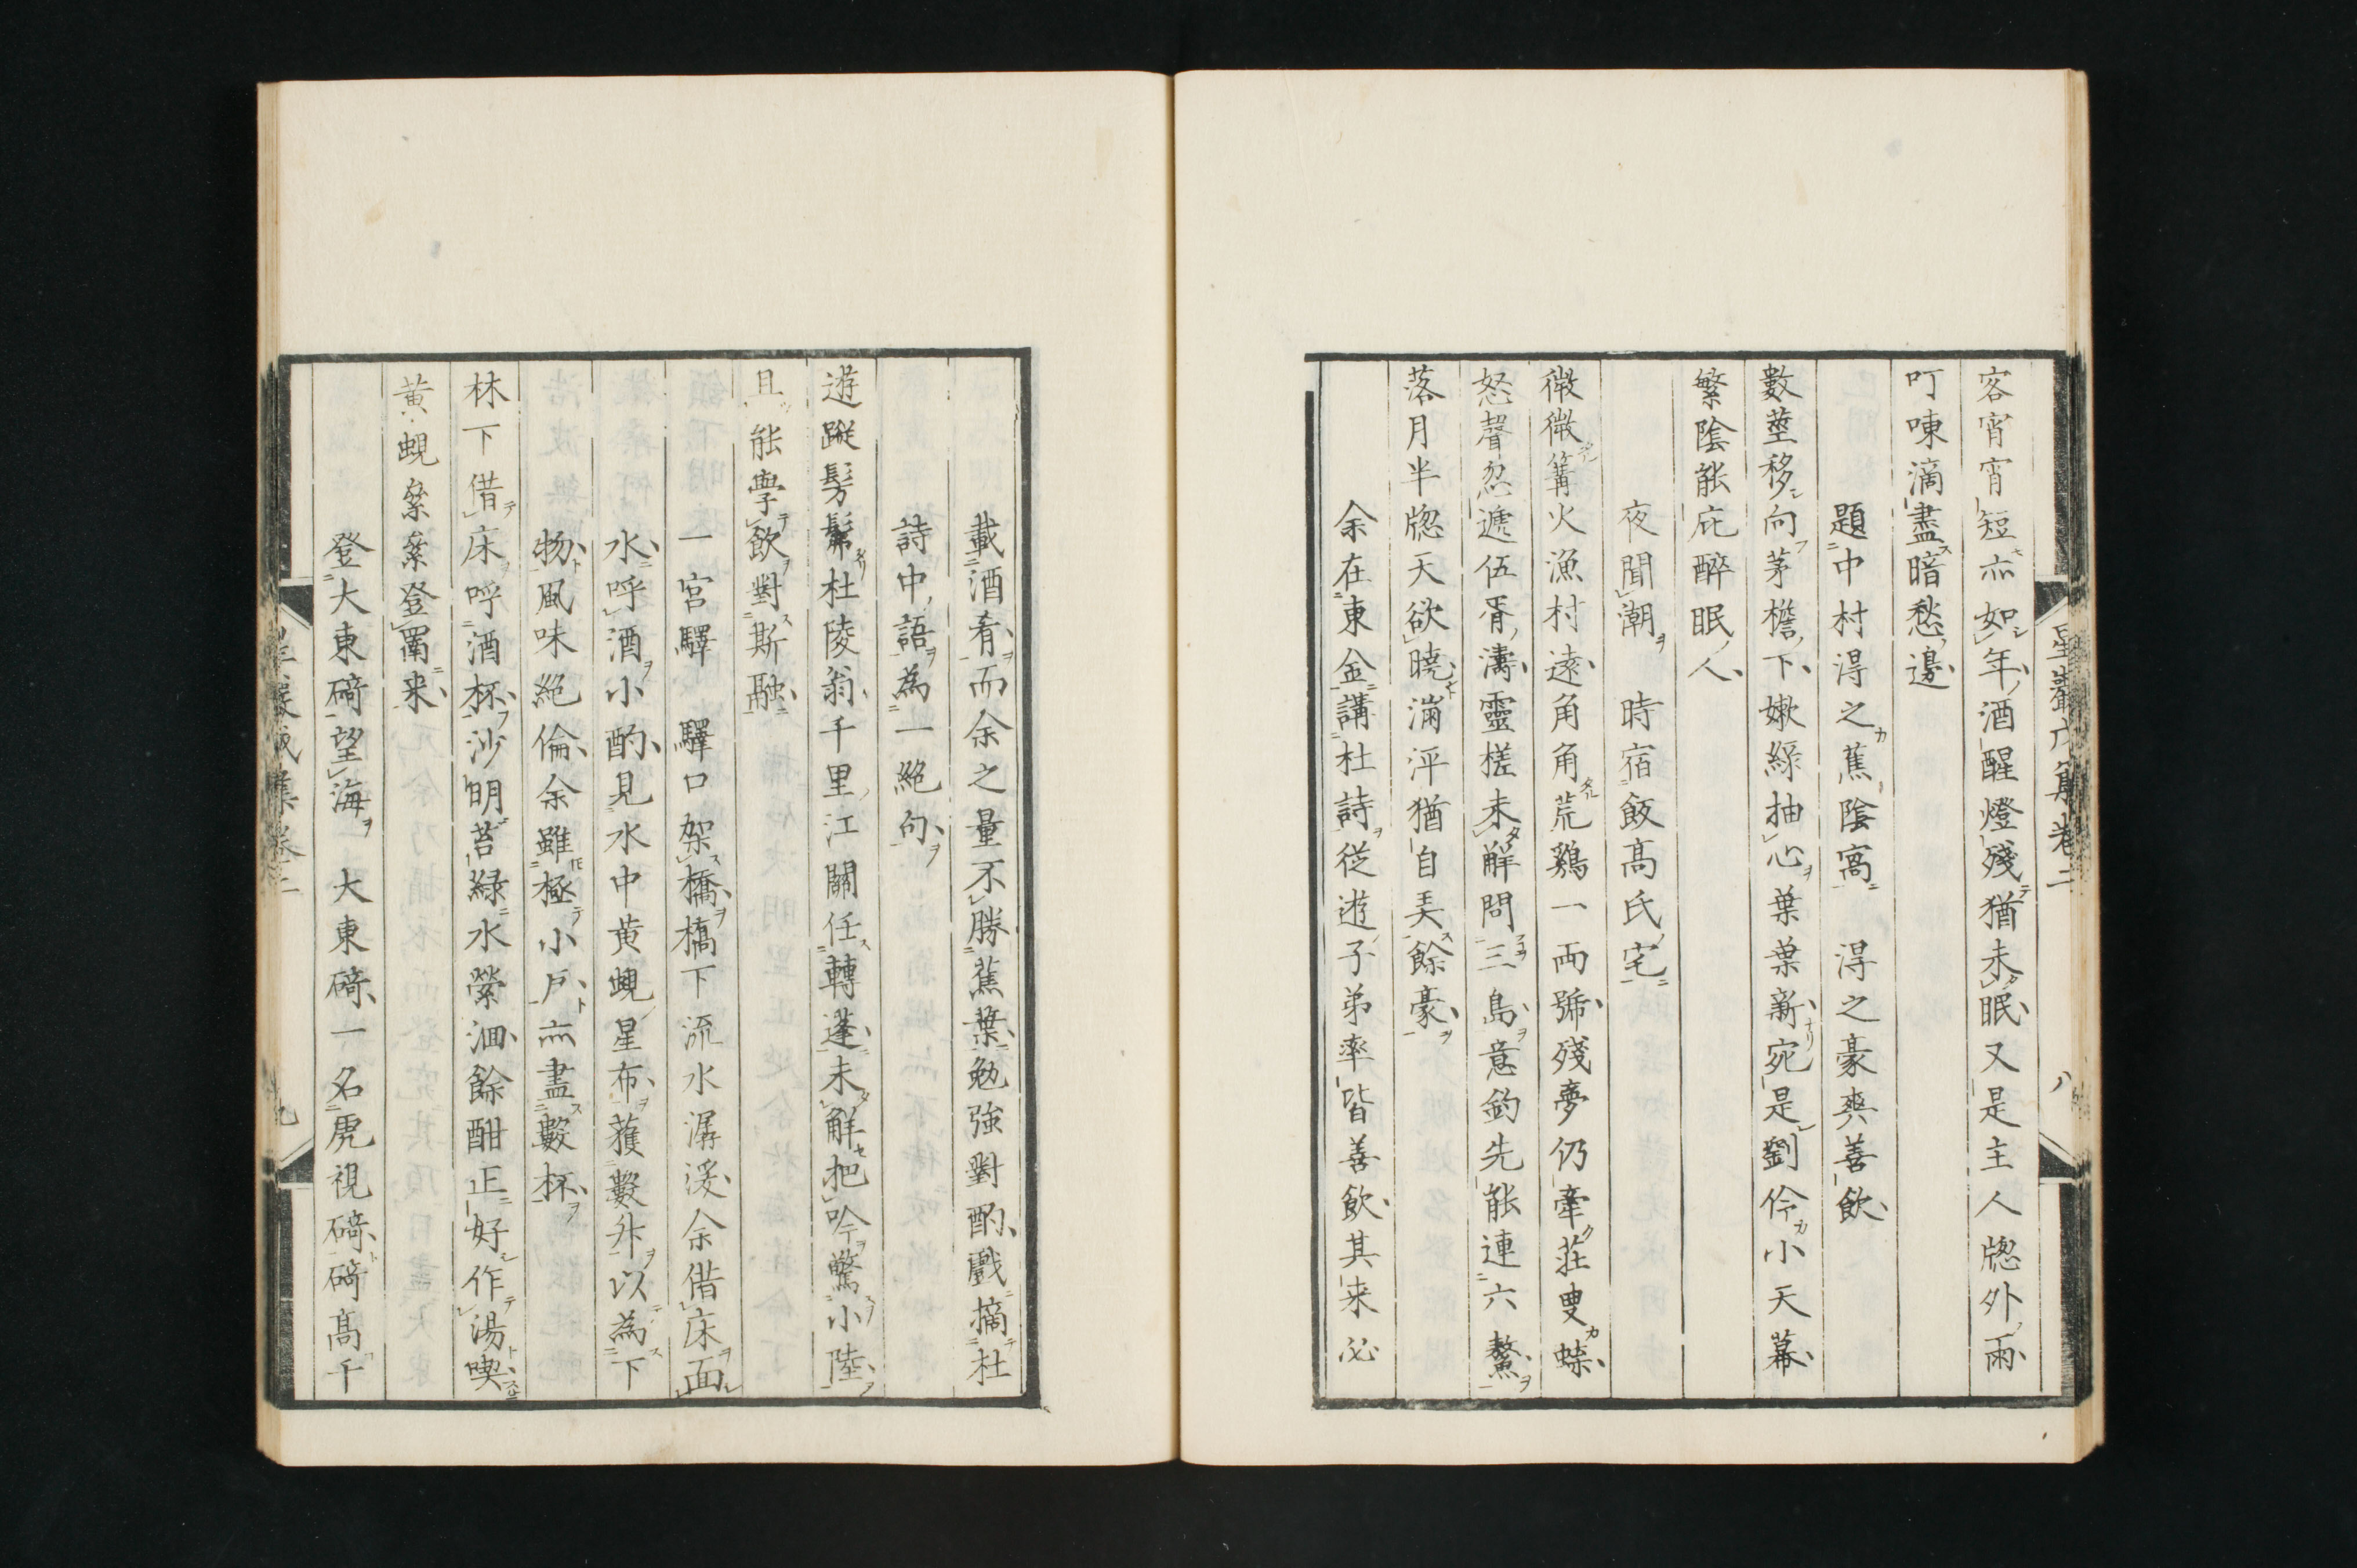 客宵宵短亦如年酒醒燈殘猶未眠又是主人牕外雨
叮咚滴盡暗愁邊
題中村得之蕉陰窩　得之豪爽善飲
數莖移向茅檐下嫩綠抽心葉葉新宛是劉伶小天幕
繁陰能庇醉眠人
夜聞潮　時宿飯高氏宅
微微篝火漁村遠角角荒鷄一兩號殘夢仍牽莊叟蝶
怒聲忽遞伍胥濤靈槎未解問三島意釣先能連六鰲
落月半牕天欲曉滿泙猶自弄餘豪
余在東金講杜詩從遊子弟率皆善飲其来必
星巖戊集卷二
八
載酒肴而余之量不勝蕉葉勉強對酌戲摘杜
詩中語為一絕句
遊蹤髣髴杜陵翁千里江關任轉蓬未解把吟驚小陸
且能學飲對斯融
一宮驛　驛口架橋橋下流水潺湲余借床面
水呼酒小酌見水中黄蜆星布獲數升以為下
物風味絕倫余雖極小戶亦盡數杯
林下借床呼酒杯沙明苔綠水縈洄餘酣正好作湯喫
黄蜆纍纍登罱来
登大東碕望海　大東碕一名虎視碕碕高千
集卷二
九